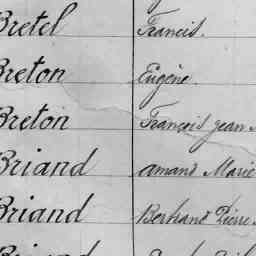 Bretel Francis.
Breton Eugène.
Breton François Jean
Briand Amand Marie
Briand Bertrand Pierre
Briand